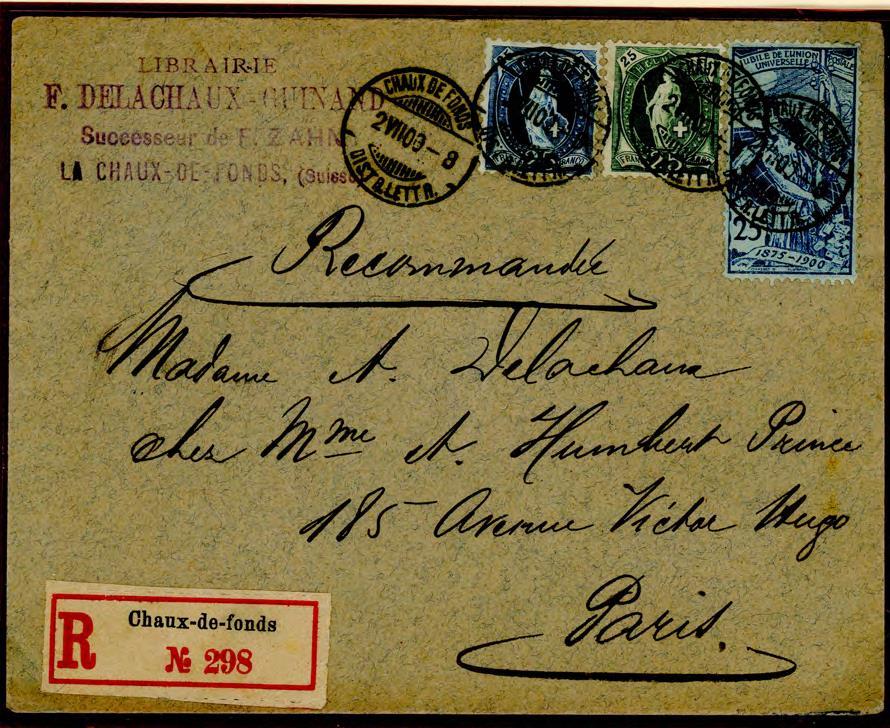 LIBRAIRIE
F. DELACHAUX-GUINAND
Successeur de F. ZAHN
LA CHAUX-DE-FONDS, (Suisse
CHAUX DE FONDS
2 VII 00-8
DISTR. LETTR.
25
25
JUBILÉ DE L'UNION
UNIVERSELLE POSTALE
25
1875-1900
Recommandée
Madame A. Delachaux
chez Mme A. Humbert Prince
185 Avenue Victor Hugo
Paris.
R
Chaux-de-fonds
№ 298